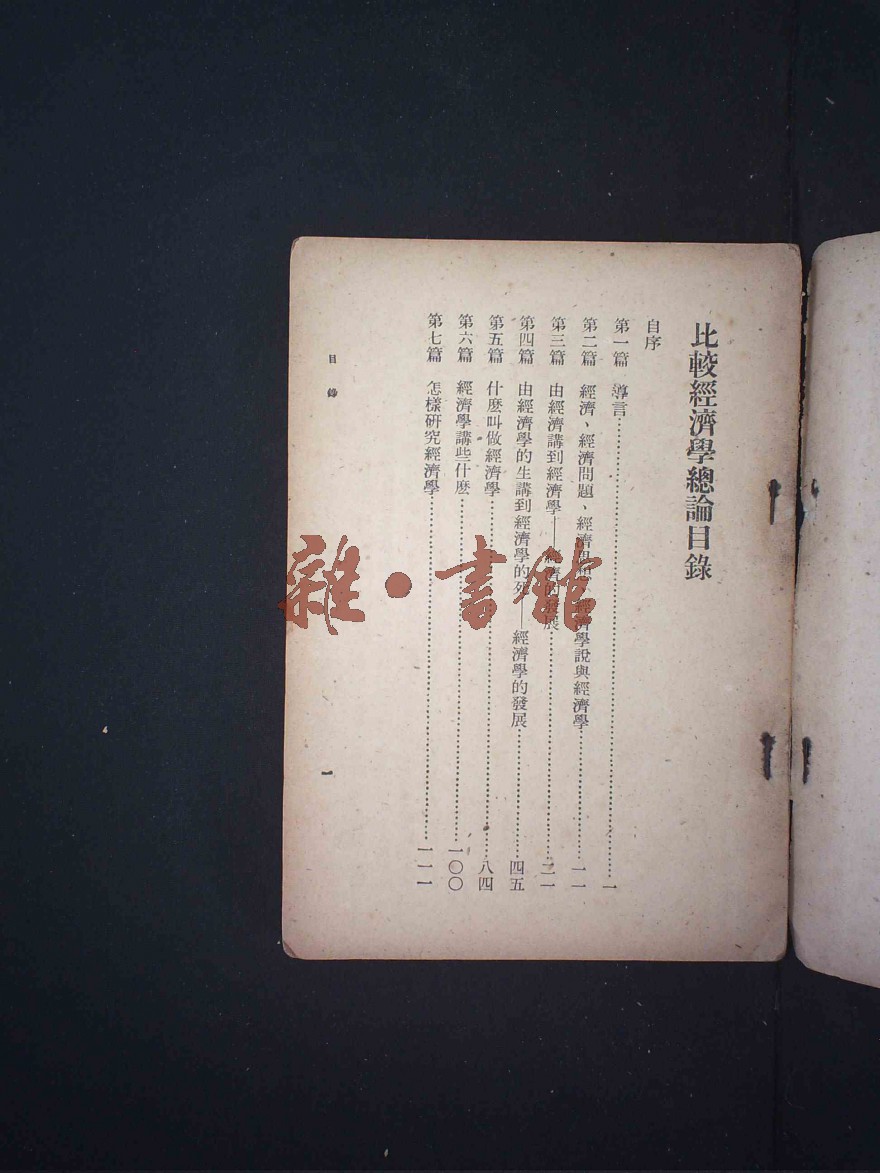 比較經濟學總論目錄
自序
第一篇 導言……一
第二篇 經濟、經濟問題、經濟思想、經濟學說與經濟學……一一
第三篇 由經濟講到經濟學——經濟的發展……二一
第四篇 由經濟學的生講到經濟學的死——經濟學的發展……四五
第五篇 什麽叫做經濟學……八四
第六篇 經濟學講些什麽……一〇〇
第七篇 怎樣研究經濟學……一一一
目錄
一
雜·書館